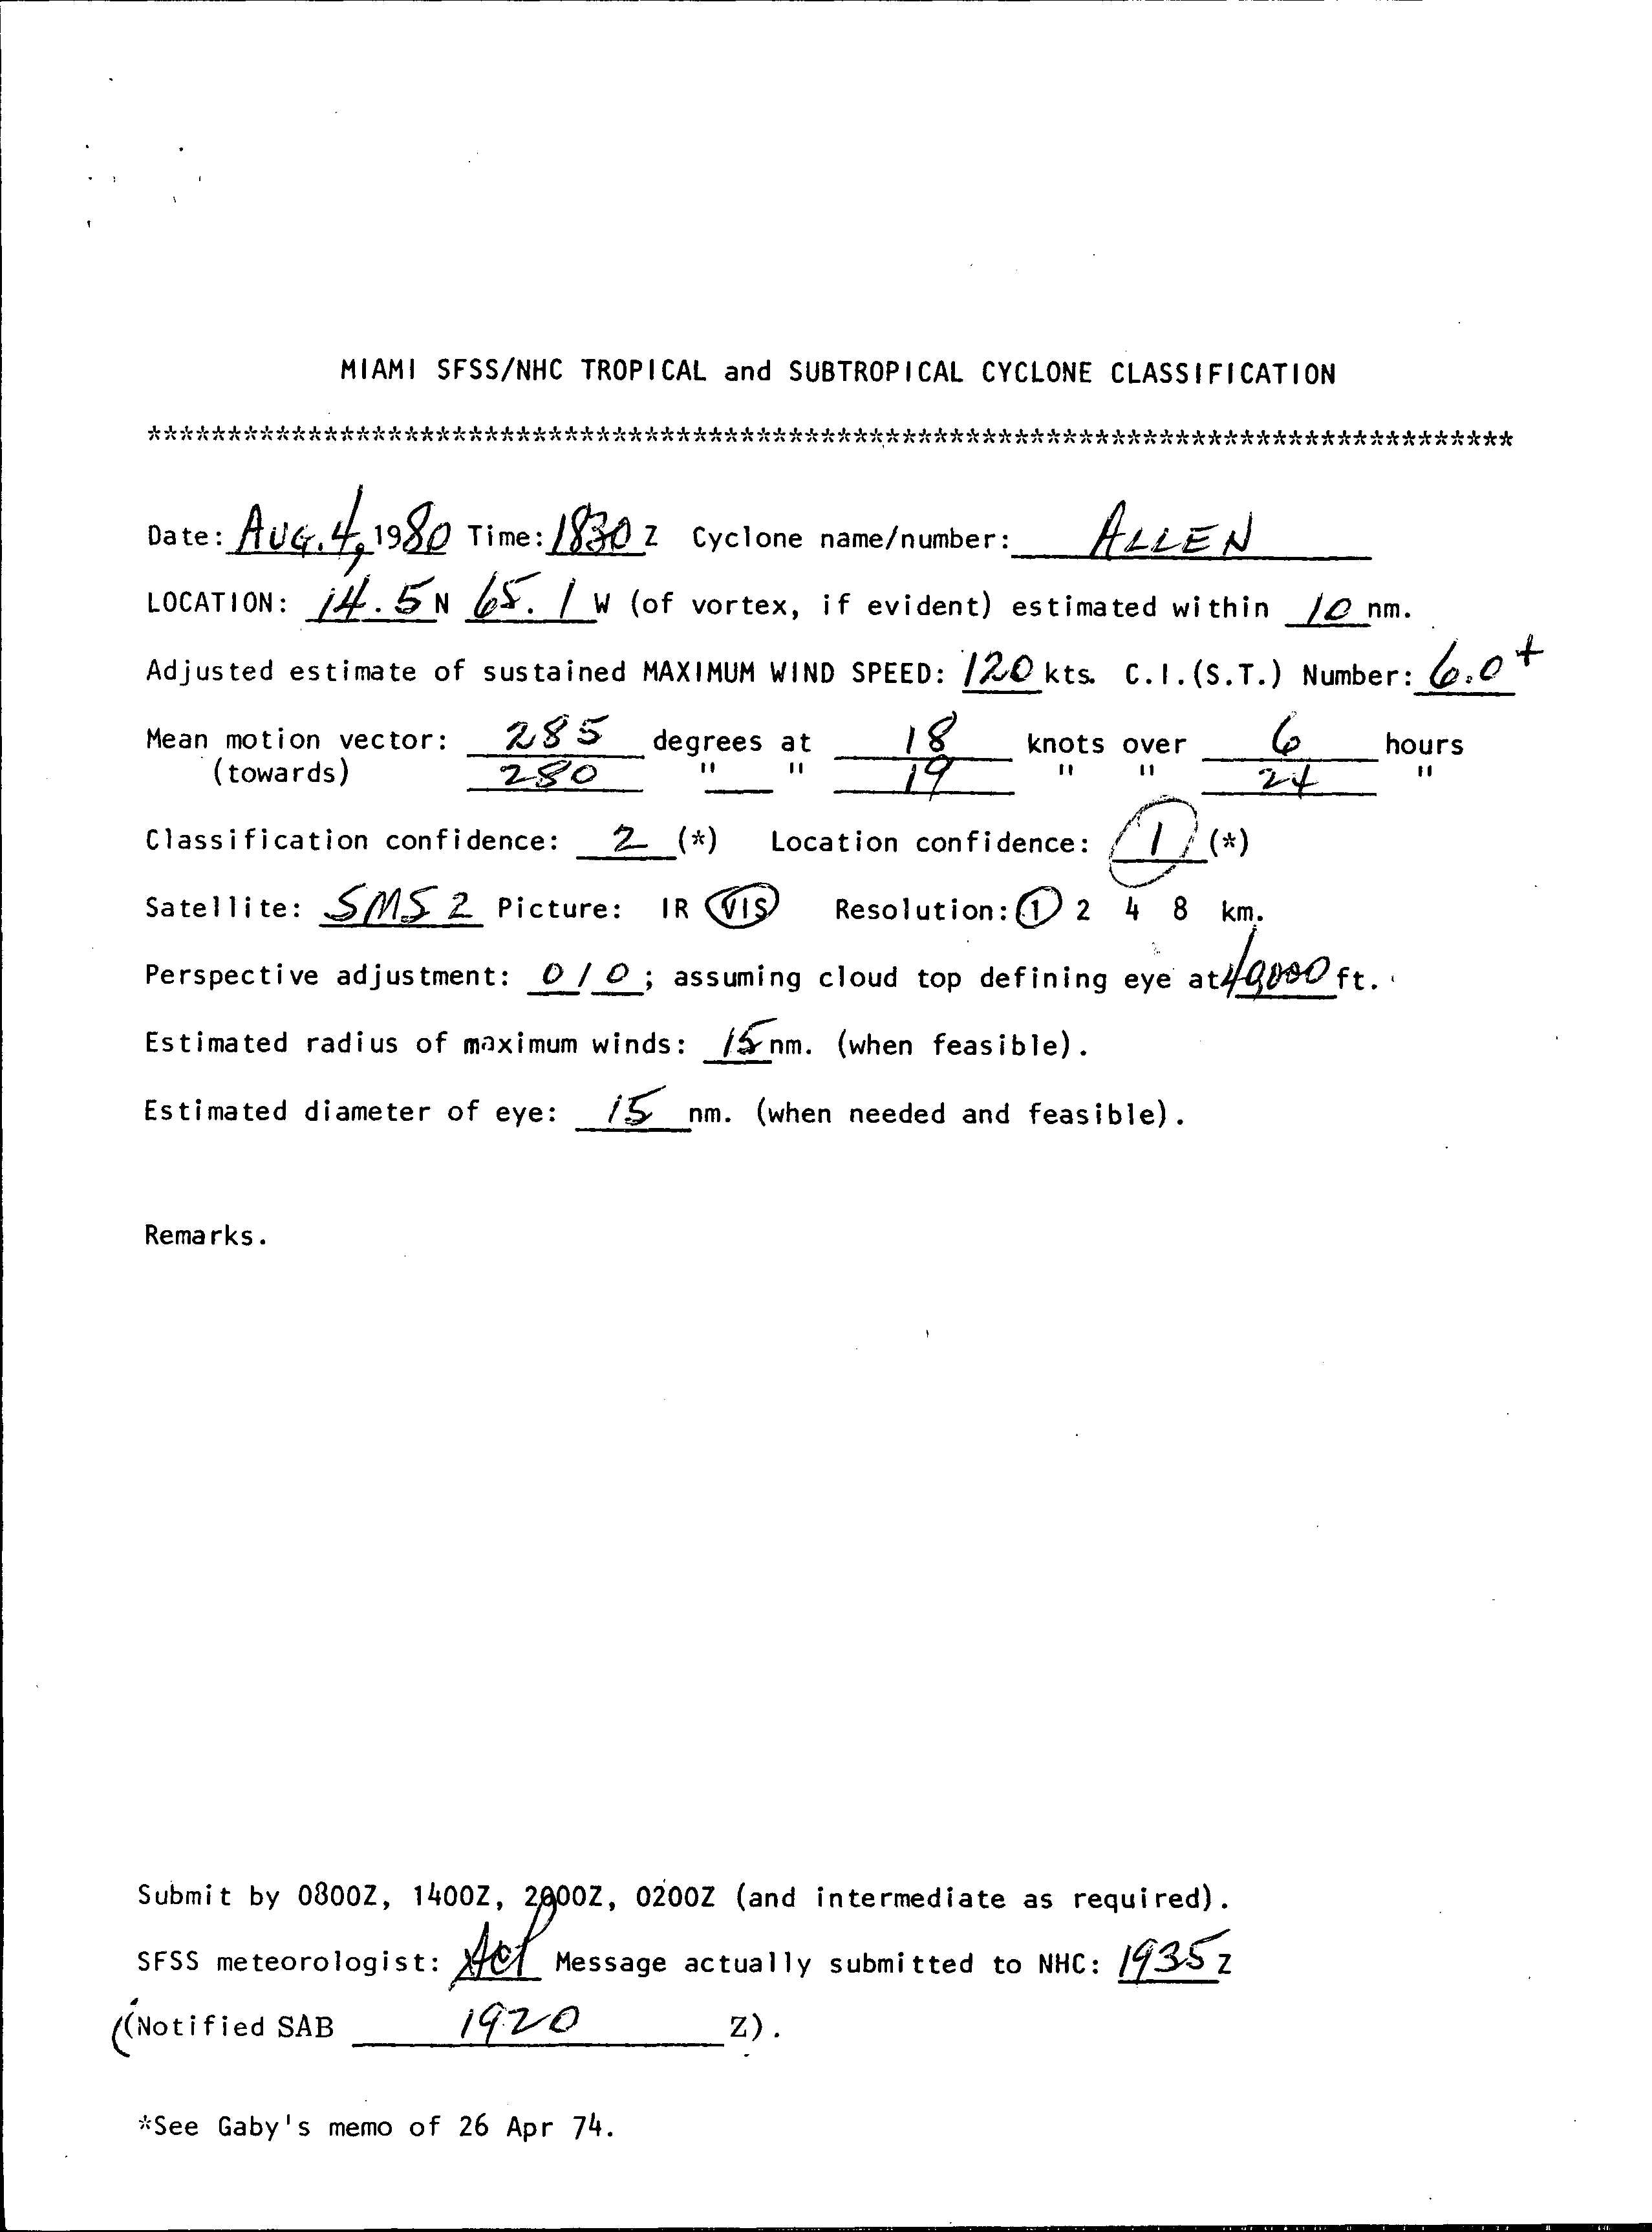 MIAMI SFSS/NHC TROPICAL and SUBTROPICAL CYCLONE CLASSIFICATION
*************************************************************************************
Date: AUG. 4, 1980 Time: 1830 Z Cyclone name/number: ALLEN
LOCATION: 14.5 N 65.1 W (of vortex, if evident) estimated within 10 nm.
Adjusted estimate of sustained MAXIMUM WIND SPEED: 120 kts. C.I.(S.T.) Number: 6.0+
Mean motion vector: 285 degrees at 18 knots over 6 hours
(towards) 280 " " 19 " " 24 "
Classification confidence: 2 (*) Location confidence: 1 (*)
Satellite: SMS 2 Picture: IR VIS Resolution: 1 2 4 8 km.
Perspective adjustment: 0 / 0 ; assuming cloud top defining eye at ft.
Estimated radius of maximum winds: 15 nm. (when feasible).
Estimated diameter of eye: 15 nm. (when needed and feasible).
Remarks.
Submit by 0800Z, 1400Z, 2000Z, 0200Z (and intermediate as required).
SFSS meteorologist: Message actually submitted to NHC: 1935 Z
((Notified SAB 1920 Z).
*See Gaby's memo of 26 Apr 74.